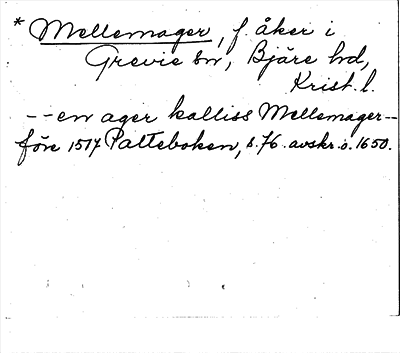 * Mellemager, f. åker i
Grevie sn, Bjäre hd,
Krist. l.
-- en ager kalliss Mellemager --
före 1517 Palteboken, s. 76. avskr. ö. 1650.